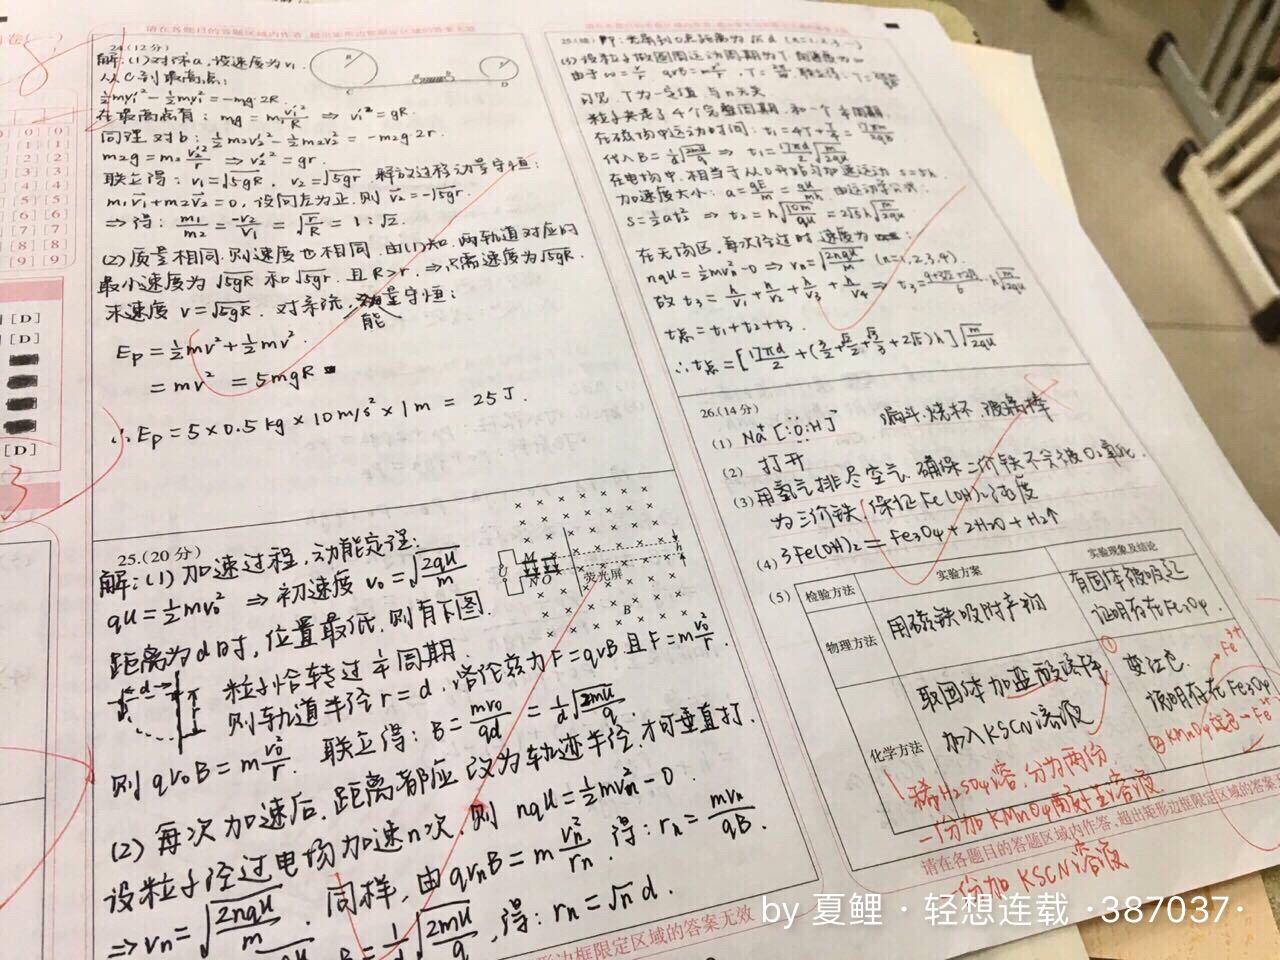 请在各题目的答题区域内作答,超出矩形边框限定区域的答案无效
24.(12分)
解:(1)对球a,设速度为v₁
从C到最高点:
½m₁v₁'²-½m₁v₁²=-mg·2R.
在最高点有:mg=m₁v₁'²/R ⇒ v₁'²=gR.
同理对b:½m₂v₂'²-½m₂v₂²=-m₂g·2r.
m₂g=m₂v₂'²/r ⇒ v₂'²=gr.
联立得:v₁=√5gR, v₂=√5gr. 释放过程动量守恒:
m₁v₁+m₂v₂=0, 设向左为正,则v₂=-√5gr.
⇒得:m₁/m₂=-v₂/v₁=√r/R=1:√2.
(2)质量相同,则速度也相同.由(1)知,两轨道对应的
最小速度为√5gR和√5gr.且R>r.⇒只需速度为√5gR.
末速度v=√5gR. 对系统,
能
量守恒:
Eₚ=½mv²+½mv².
=mv²=5mgR
∴Eₚ=5×0.5kg×10m/s²×1m=25J.
25.(20分)
解:(1)加速过程,动能定理:
qU=½mv₀² ⇒初速度v₀=√2qU/m
距离为d时,位置最低,则有下图.
粒子恰转过¼周期.
则轨道半径r=d.洛伦兹力F=qvB且F=mv₀²/r.
则qv₀B=mv₀²/r. 联立得:B=mv₀/qd=1/d√2mU/q.
(2)每次加速后,距离都应改为轨迹半径,才可垂直打.
设粒子经过电场加速n次,则nqU=½mvₙ²-0
⇒vₙ=√2nqU/m. 同样,由qvₙB=mvₙ²/rₙ.得:rₙ=mvₙ/qB.
B=1/d√2mU/q,得:rₙ=√n d.
M
N O
荧光屏
B
U
h
(3)设粒子做圆周运动周期为T,角速度为ω
可见,T为一定值,与n无关.
粒子共走了4个完整周期,和一个¼周期.
在磁场中运动时间:t₁=4T+T/4=17πm/2qB
代入B=1/d√2mU/q ⇒ t₁=17πd/2√m/2qU
在电场中,相当于从0开始匀加速运动 s=5h
加速度大小:a=qE/m=qU/mh.由运动学公式:
s=½at₂² ⇒ t₂=h√10m/qU=2√5h√m/2qU
在无场区,每次经过时速度为
nqU=½mvₙ²-0⇒vₙ=√2nqU/m (n=1,2,3,4).
故t₃=h/v₁+h/v₂+h/v₃+h/v₄
t总=t₁+t₂+t₃.
26.(14分)
(1) Na⁺[:O:H]⁻ 漏斗.烧杯.玻璃棒
(2) 打开
(3)用氢气排尽空气.确保二价铁不会被O₂氧化
为三价铁.保证Fe(OH)₂纯度
(4) 3Fe(OH)₂=Fe₃O₄+2H₂O+H₂↑
(5) 检验方法 实验方案 实验现象及结论
物理方法 用磁铁吸附产物 有固体被吸起
证明存在Fe₃O₄.
化学方法 取固体加盐酸溶解 变红色.
加入KSCN溶液 说明存在Fe₃O₄
① Fe³⁺
② KMnO₄褪色-Fe²⁺
稀H₂SO₄溶,分为两份.
一份加KMnO₄
一份加KSCN溶液
请在各题目的答题区域内作答,超出矩形边框限定区域的答案
形边框限定区域的答案无效
[D]
[D]
[D]
3
by 夏鲤 · 轻想连载 ·387037·